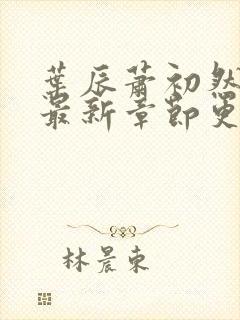 葉辰蕭初然
最新章節更
林晨東